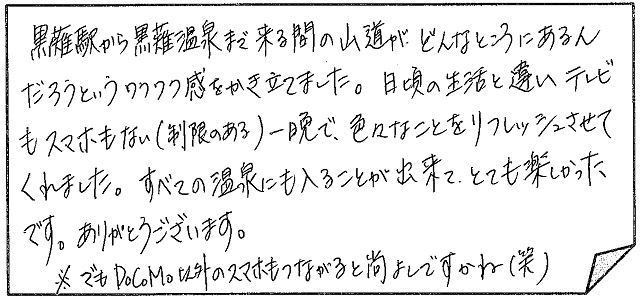 黒薙駅から黒薙温泉まで来る間の山道が どんなところにあるん
だろうというワクワク感をかき立てました。日頃の生活と違い テレビ
もスマホもない(制限のある)一晩で、色々なことをリフレッシュさせて
くれました。すべての温泉にも入ることが出来て、とても楽しかった
です。ありがとうございます。
※でもDoCoMo以外のスマホもつながると尚よしですかね(笑)